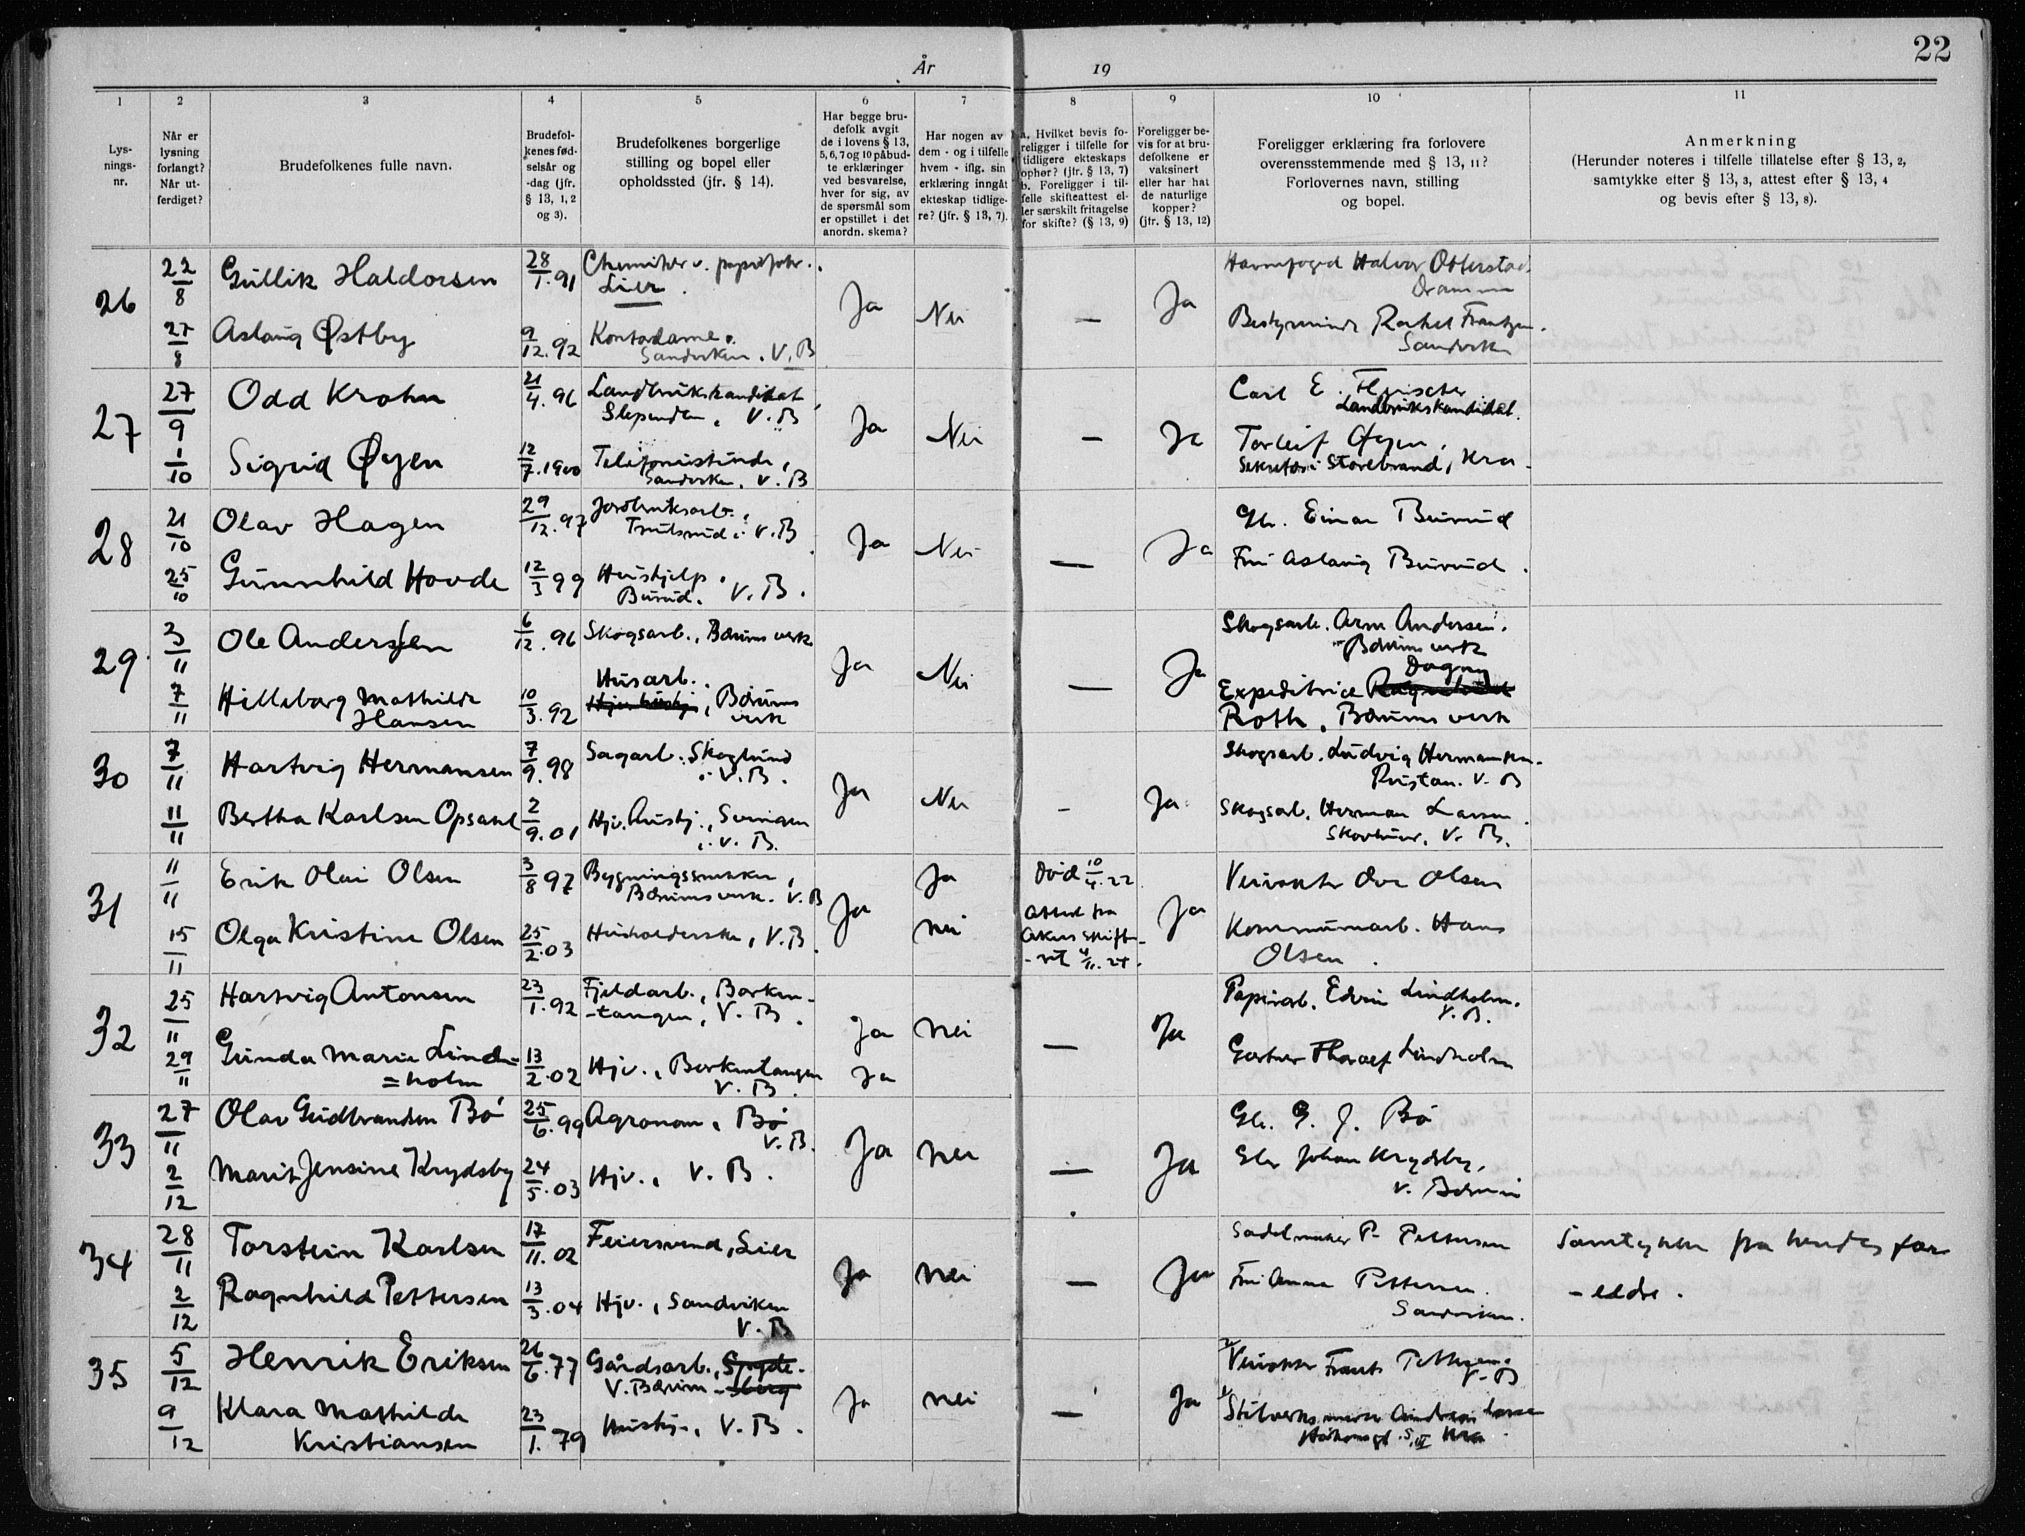 År 19
22
1 2 3 4 5 6 7 8 9 10 11
Lys-
nings-
nr.
Når er
lysning
forlangt?
Når ut-
ferdiget?
Brudefolkenes fulle navn.
Brudefol-
kenes fød-
selsår og
-dag (jfr.
§ 13, 1, 2
og 3).
Brudefolkenes borgerlige
stilling og bopel eller
opholdssted (jfr. § 14).
Har begge bru-
defolk avgit
de i lovens § 13,
5, 6, 7 og 10 påbud-
te erklæringer
ved besvarelse,
hver for sig, av
de spørsmål som
er opstillet i det
anordn. skema?
Har nogen av
dem - og i tilfelle
hvem - iflg. sin
erklæring inngåt
ekteskap tidlige-
re? (jfr. § 13, 7).
a. Hvilket bevis fo-
religger i tilfelle for
tidligere ekteskaps
ophør? (jfr. § 13, 7)
b. Foreligger i til-
felle skifteattest el-
ler særskilt fritagelse
for skifte? (§ 13, 9)
Foreligger be-
vis for at bru-
defolkene er
vaksinert
eller har hat
de naturlige
kopper?
(jfr. § 13, 12)
Foreligger erklæring fra forlovere
overensstemmende med § 13, 11?
Forlovernes navn, stilling
og bopel.
Anmerkning
(Herunder noteres i tilfelle tillatelse efter § 13, 2,
samtykke efter § 13, 3, attest efter § 13, 4
og bevis efter § 13, 8).
26 22/8 Gullik Haldorsen 28/1.91 Chemiker v. papirfabr.
Lier
Ja Nei — Ja
Halvor Otterstad
Drammen
27/8 Aslaug Østby 9/12.92 Kontordame,
Sandviken. V. B
Bestyrerinde Rachel Frantzen.
Sandviken
27 27/9 Odd Krohn 21/4.96 Landbrukskandidat
Slependen, V. B
Ja Nei — Ja
Carl E. Fleischer
Landbrukskandidat.
1/10 Sigrid Øyen 12/7.1900 Telefonistinde,
Sandviken. V. B
Torleif Øyen,
Sekretær i Storebrand, Kra.
28 21/10 Olav Hagen 29/12.97 Jordbruksarb.,
V. B
Ja Nei — Ja
Gbr. Einar Burud
25/10 Gunnhild Hovde 12/3 99 Hushjelp,
Burud. V. B.
Fru Aslaug Burud.
29 3/11 Ole Andersen 6/12.96 Skogsarb., Bærums verk
Ja Nei — Ja
Skogsarb. Arne Andersen.
Bærums verk
7/11 Hilleborg Mathilde
Hansen
10/3.92 Husarb.
Bærums
verk
Dagny
Expeditrice Ragnhild
Roth, Bærums verk
30 7/11 Hartvig Hermansen 7/9.98 Sagarb. Skoglund
i V. B.
Ja Nei - Ja
Skogsarb. Ludvig Hermansen.
V. B
11/11 Bertha Karlsen Opsahl 2/9.01 Hjv. hushj., Svingen
i V. B.
Skogsarb. Herman Larsen.
V. B.
31 11/11 Erik Olai Olsen 3/8 97 Bygningssnekker,
Bærums verk. V. B
Ja Ja
Død 10/4.22
Ja
Veivokter Ove Olsen
15/11 Olga Kristine Olsen 25/2.03 Husholderske, V. B.
nei
Attest fra
Akers skifte-
-rett 4/11.24.
Kommunarb. Hans
Olsen.
32 25/11 Hartvig Antonsen 23/1.92 Fjeldarb., Borken-
-tangen, V. B.
Ja nei — Ja
Papirarb. Edvin Lindholm.
V. B.
29/11 Gunda Marie Lind-
=holm
13/2.02 Hjv., Borkentangen
V. B.
Ja
Gartner Thoralf Lindholm
33 27/11 Olav Gudbrandsen Bø 25/6.99 Agronom, Bø
V. B.
Ja nei — Ja
Gbr. G. J. Bø
2/12 Marit Jensine Krydsby 24/5.03 Hjv., V. B.
Gbr Johan Krydsby,
V. Bærum
34 28/11 Torstein Karlsen 17/11.02 Feiersvend, Lier
Ja nei — Ja
Sadelmaker P. Pettersen
Samtykke fra hendes for-
-eldre.
2/12 Ragnhild Pettersen 13/3.04 Hjv., Sandviken
V. B
Fru Anna Pettersen.
Sandviken.
35 5/12 Henrik Eriksen 26/6.77 Gårdsarb., Spyde-
V. Bærum -sberg
Ja nei — Ja
Veivokter Frants Pettersen.
V. B
9/12 Klara Mathilde
Kristiansen
23/1.79 Hushj., V. B.
Andreas Larsen